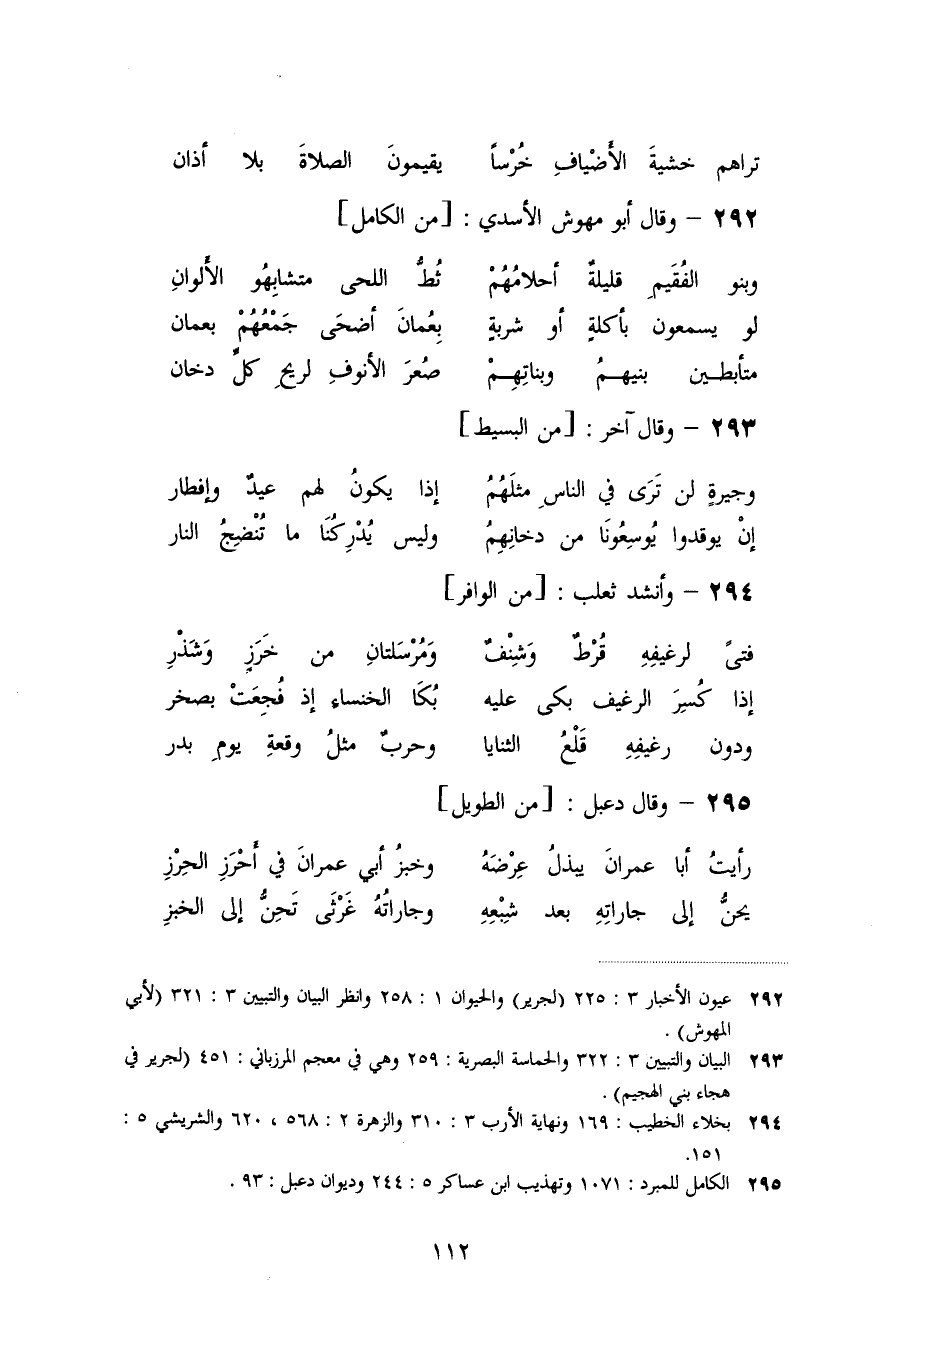 تراهم خشيةَ الأَضْيافِ خُرْساً يقيمونَ الصلاةَ بلا أذان
٢٩٢ – وقال أبو مهوش الأسدي : [من الكامل]
وبنو الفُقَيمِ قليلةٌ أحلامُهُمْ ثُطُّ اللحى متشابِهُو الأَلوانِ
لو يسمعون بأكلةٍ أو شربةٍ بِعُمانَ أضحَى جَمْعُهُمْ بعمان
متأبطين بنيهمُ وبناتِهِمْ صُعرَ الأنوفِ لريحِ كلِّ دخان
٢٩٣ – وقال آخر : [من البسيط]
وجيرةٍ لن تَرَى في الناسِ مثلَهُمُ إذا يكونُ لهم عيدٌ وإفطار
إنْ يوقدوا يُوسِعُونَا من دخانِهِمُ وليس يُدْرِكُنَا ما تُنْضِجُ النار
٢٩٤ – وأنشد ثعلب : [من الوافر]
فتىً لرغيفِهِ قُرْطٌ وَشِنْفٌ وَمُرْسَلتانِ من خَرَزٍ وَشَذْرِ
إذا كُسِرَ الرغيف بكى عليه بُكَا الخنساءِ إذ فُجِعَتْ بصخر
ودون رغيفِهِ قَلْعُ الثنايا وحربٌ مثلُ وقعةِ يومِ بدر
٢٩٥ – وقال دعبل : [من الطويل]
رأيتُ أبا عمرانَ يبذلُ عِرْضَهُ وخبزُ أبي عمرانَ في أَحْرَزِ الحِرْزِ
يحنُّ إلى جاراتِهِ بعد شِبْعِهِ وجاراتُهُ غَرْثَى تَحِنُّ إلى الخبزِ
٢٩٢ عيون الأخبار ٣ : ٢٢٥ (لجرير) والحيوان ١ : ٢٥٨ وانظر البيان والتبيين ٣ : ٣٢١ (لأبي
المهوش) .
٢٩٣ البيان والتبيين ٣ : ٣٢٢ والحماسة البصرية : ٢٥٩ وهي في معجم المرزباني : ٤٥١ (لجرير في
هجاء بني الهجيم) .
٢٩٤ بخلاء الخطيب : ١٦٩ ونهاية الأرب ٣ : ٣١٠ والزهرة ٢ : ٥٦٨ ، ٦٢٠ والشريشي ٥ :
١٥١.
٢٩٥ الكامل للمبرد : ١٠٧١ وتهذيب ابن عساكر ٥ : ٢٤٤ وديوان دعبل : ٩٣ .
١١٢